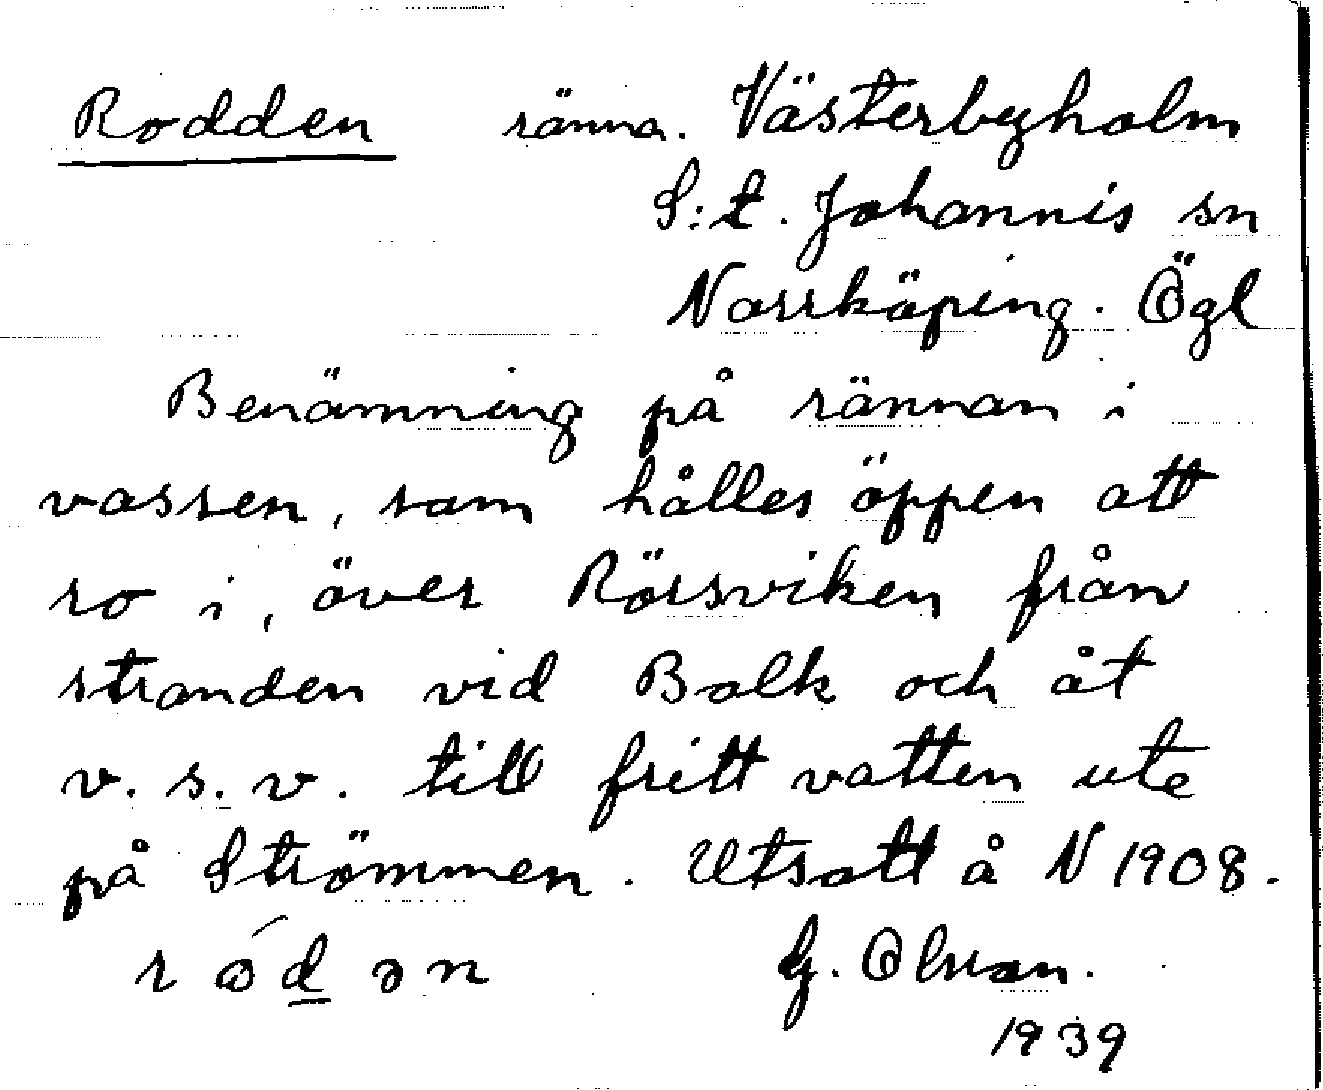 Rodden ränna. Västerbyholm
S:t. Johannis sn
Norrköping. Ögl
Benämning på rännan i
vassen, som hålles öppen att
ro i, över Rörsviken från
stranden vid Balk och åt
v. s. v. till fritt vatten ute
på Strömmen. Utsatt å N 1908.
G. Olsson.
1939